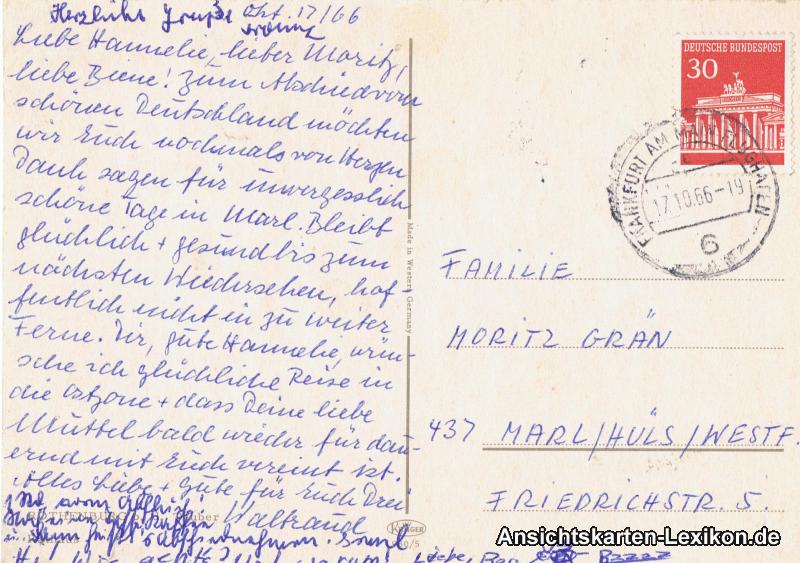 Herzliche Grüße
Okt. 17/66
Liebe Hannelie, lieber Moritz,
liebe Biene! Zum Abschied vom
schönen Deutschland möchten
wir Euch nochmals von Herzen
Dank sagen für unvergesslich
schöne Tage in Marl. Bleibt
glücklich + gesund bis zum
nächsten Wiedersehen, hof-
fentlich nicht in zu weiter
Ferne. Dir, gute Hannelie, wün-
sche ich glückliche Reise in
die Ostzone + dass Deine liebe
Mutter bald wieder für dau-
ernd mit Euch vereint ist.
Alles Liebe + Gute für Euch Drei
Waltraud
ROTHENBURG
Made in Western Germany
KRÜGER
DEUTSCHE BUNDESPOST
30
FRANKFURT AM MAIN FLUGHAFEN
17.10.66-19
6
FAMILIE
MORITZ GRÄN
437 MARL/HÜLS/WESTF.
FRIEDRICHSTR. 5
Ansichtskarten-Lexikon.de